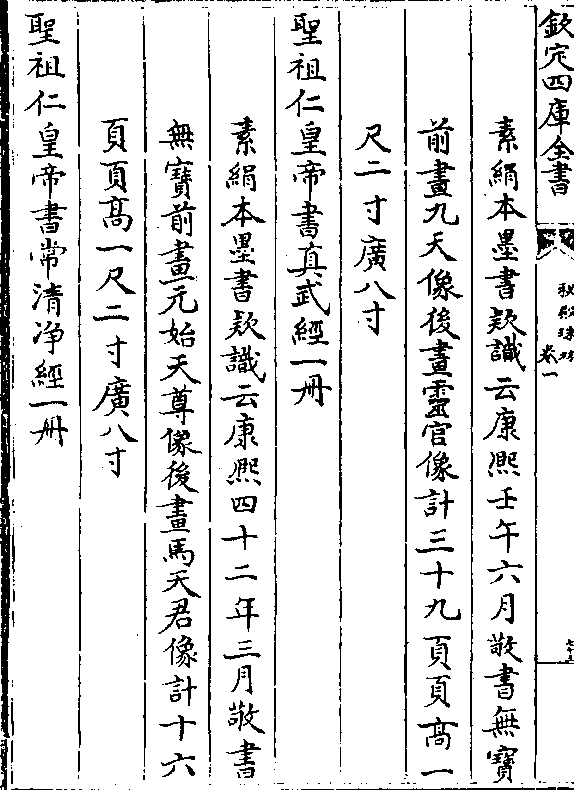 欽定四庫全書
秘殿珠林
卷一
素絹本墨書款識云康熙壬午六月敬書無寶
前畫九天像後畫靈官像計三十九頁頁高一
尺二寸廣八寸
聖祖仁皇帝書真武經一冊
素絹本墨書款識云康熙四十二年三月敬書
無寶前畫元始天尊像後畫馬天君像計十六
頁頁高一尺二寸廣八寸
聖祖仁皇帝書常清净經一冊